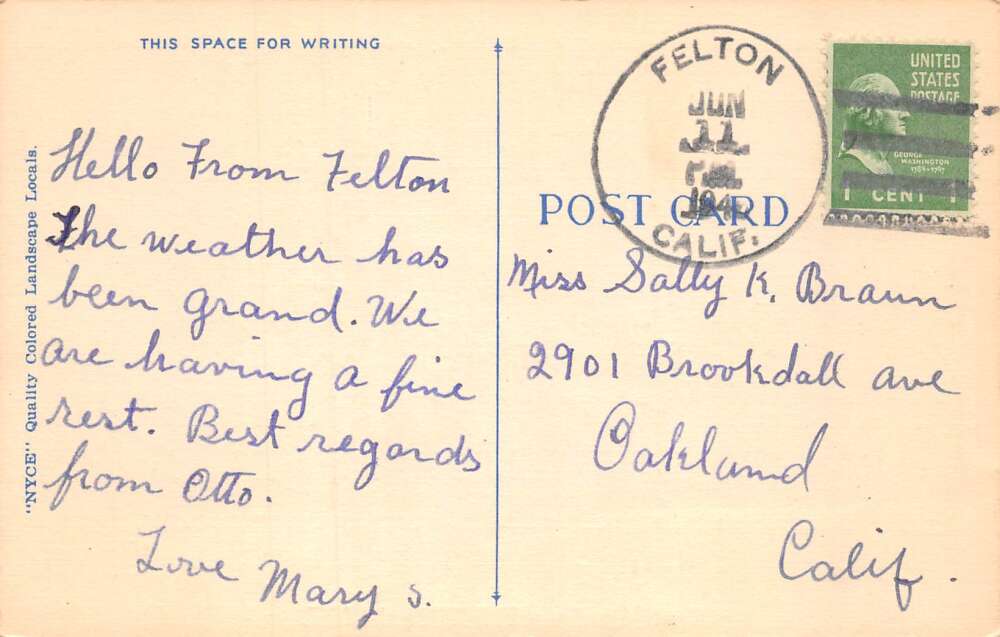 THIS SPACE FOR WRITING
Hello From Felton
The weather has
been grand. We
are having a fine
rest. Best regards
from Otto.
Love Mary S.
"NYCE" Quality Colored Landscape Locals.
FELTON
JUN
11
CALIF.
UNITED
STATES
POSTAGE
GEORGE
WASHINGTON
1 CENT 1
POST CARD
Miss Sally K. Braun
2901 Brookdall ave
Oakland
Calif.